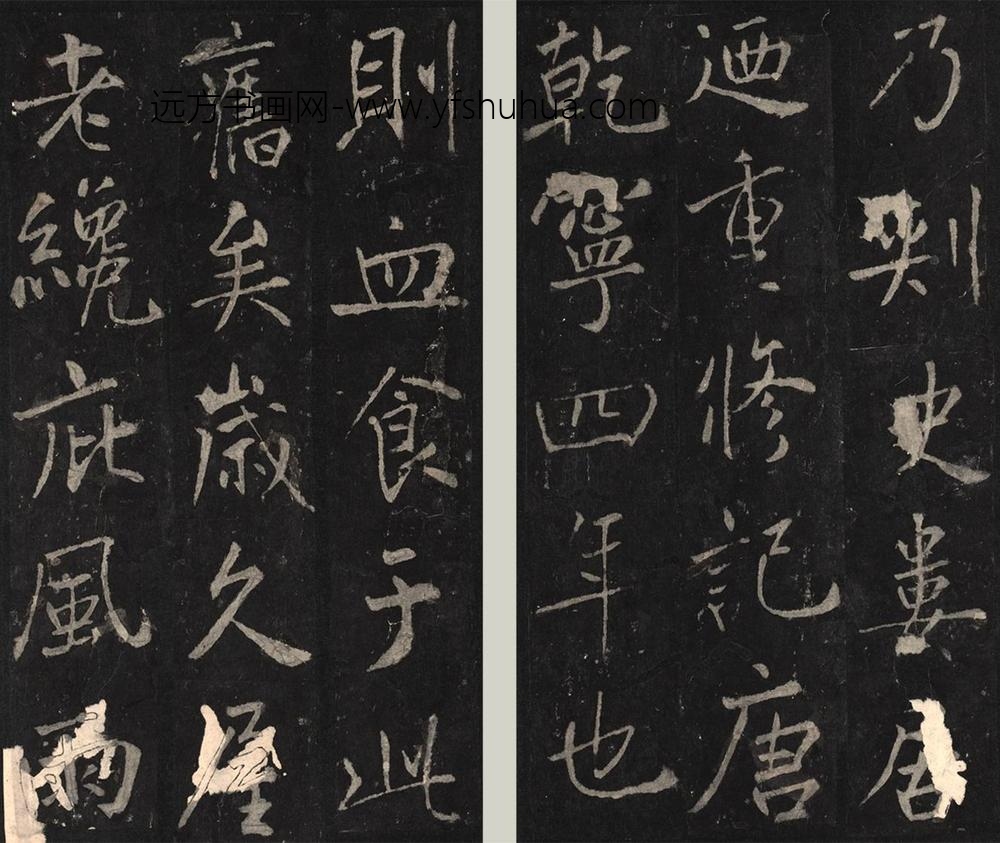 远方书画网-www.yfshuhua.com
乃刺史婁居
迺重修記唐
乾寧四年也
則血食于此
舊矣歲久屋
老纔庇風雨